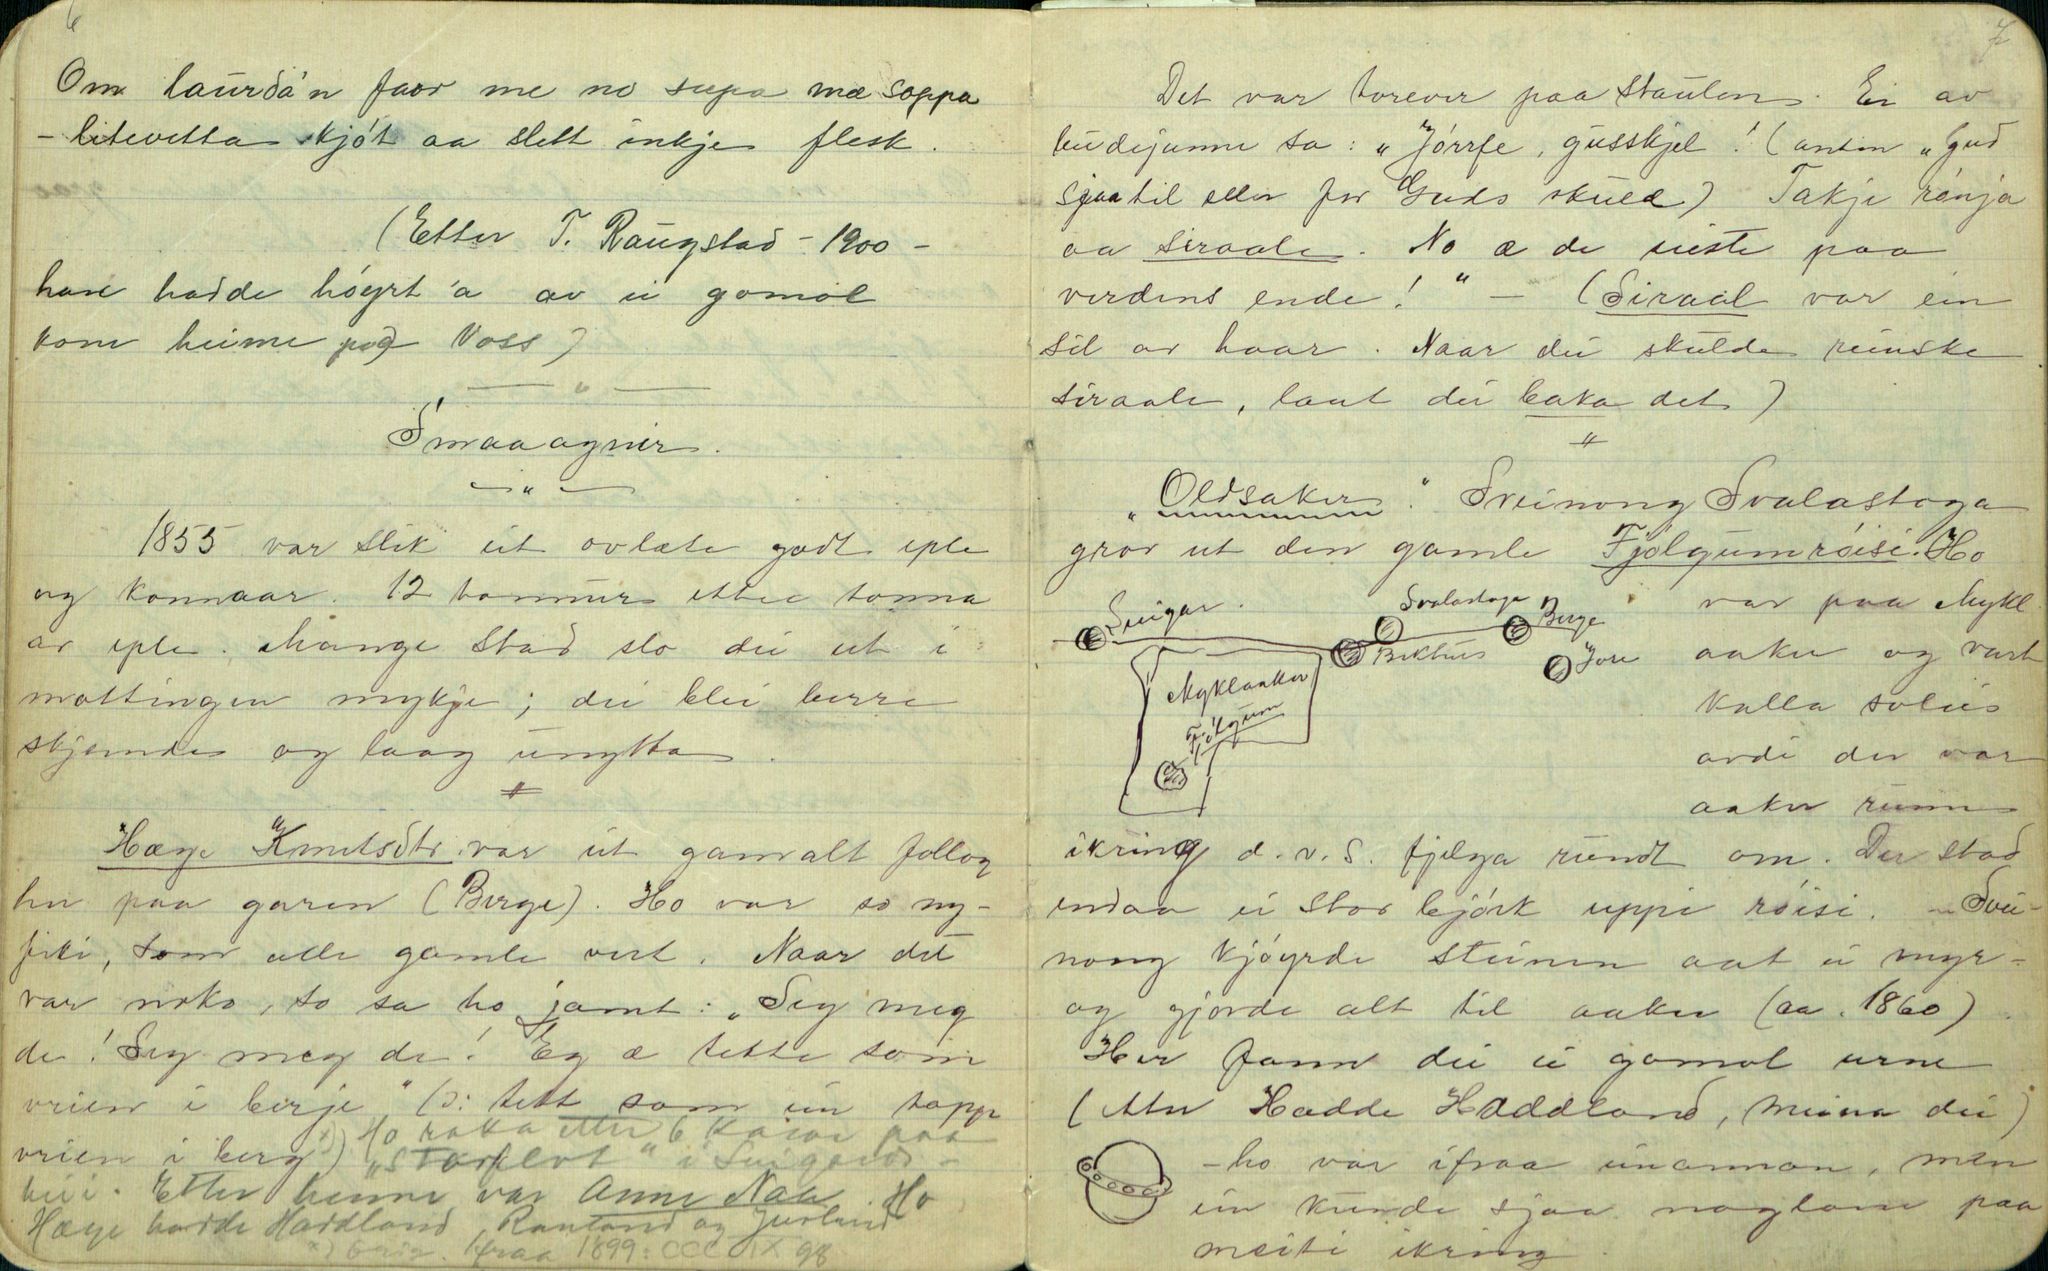 6
Om laurda'n faar me no supa mæ soppa
- litevetta kjót aa slett inkje flesk.
(Etter T. Raugstad - 1900 -
han hadde höyrt 'a av ei gomol
kone heime paa Voss)
Smaaagnir.
1855 var slik eit ovlæte godt eple
og konnaar. 12 tonnur etter tonna
av eple. Mange stad slo dei ut i
mottingen mykje; dei blei berre
skjemde og laag unytta.
Hæge Knutsdtr. var eit gamalt follog
her paa garen (Berge). Ho var so ny-
fiki, som alle gamle vert. Naar det
var noko, so sa ho jamt: "Seg meg
de! Seg meg de! Eg æ tette som
vrien i berje" (ɔ: tett som ein tapp
vrien i berg) Ho raka etter 6 karar paa
"Storflot" i Suigards-
lii. Etter henne var Anne Naa. Ho
Hæge hadde Haddland, Rauland og
fraa 1899: CCCIX 98
7
Det var torever paa staulen. Ei av
budejunne sa: "Jörrfe, gusskjel! (anten "Gud
sjaa til eller for Guds skuld) Takje ranja
aa siraale. No æ de sieste paa
verdens ende!" - (Siraal var ein
sil av haar. Naar dei skulde reinske
siraale, laut dei baka det)
"Oldsaker". Sveinong Svalastoga
grov ut den gamle Fjölgumröisi. Ho
var paa Mykl-
aaker og vart
kalla soleis
avdi der var
aaker runn
ikring d.v.s. fjelga rundt om. Der stod
endaa ei stor bjórk uppi röisi. - Svei-
nong kjöyrde steinen aat ei myr -
og gjorde alt til aaker (ca. 1860).
Her fann dei ei gomol urne
(etter Hadde Haddland, meina dei)
- ho var ifraa einannan, men
ein kunde sjaa naglane paa
meiti ikring.
Suigar.
Svalastoga
Berge
Bekhus
Jore
Myklaaker
Fjölgum